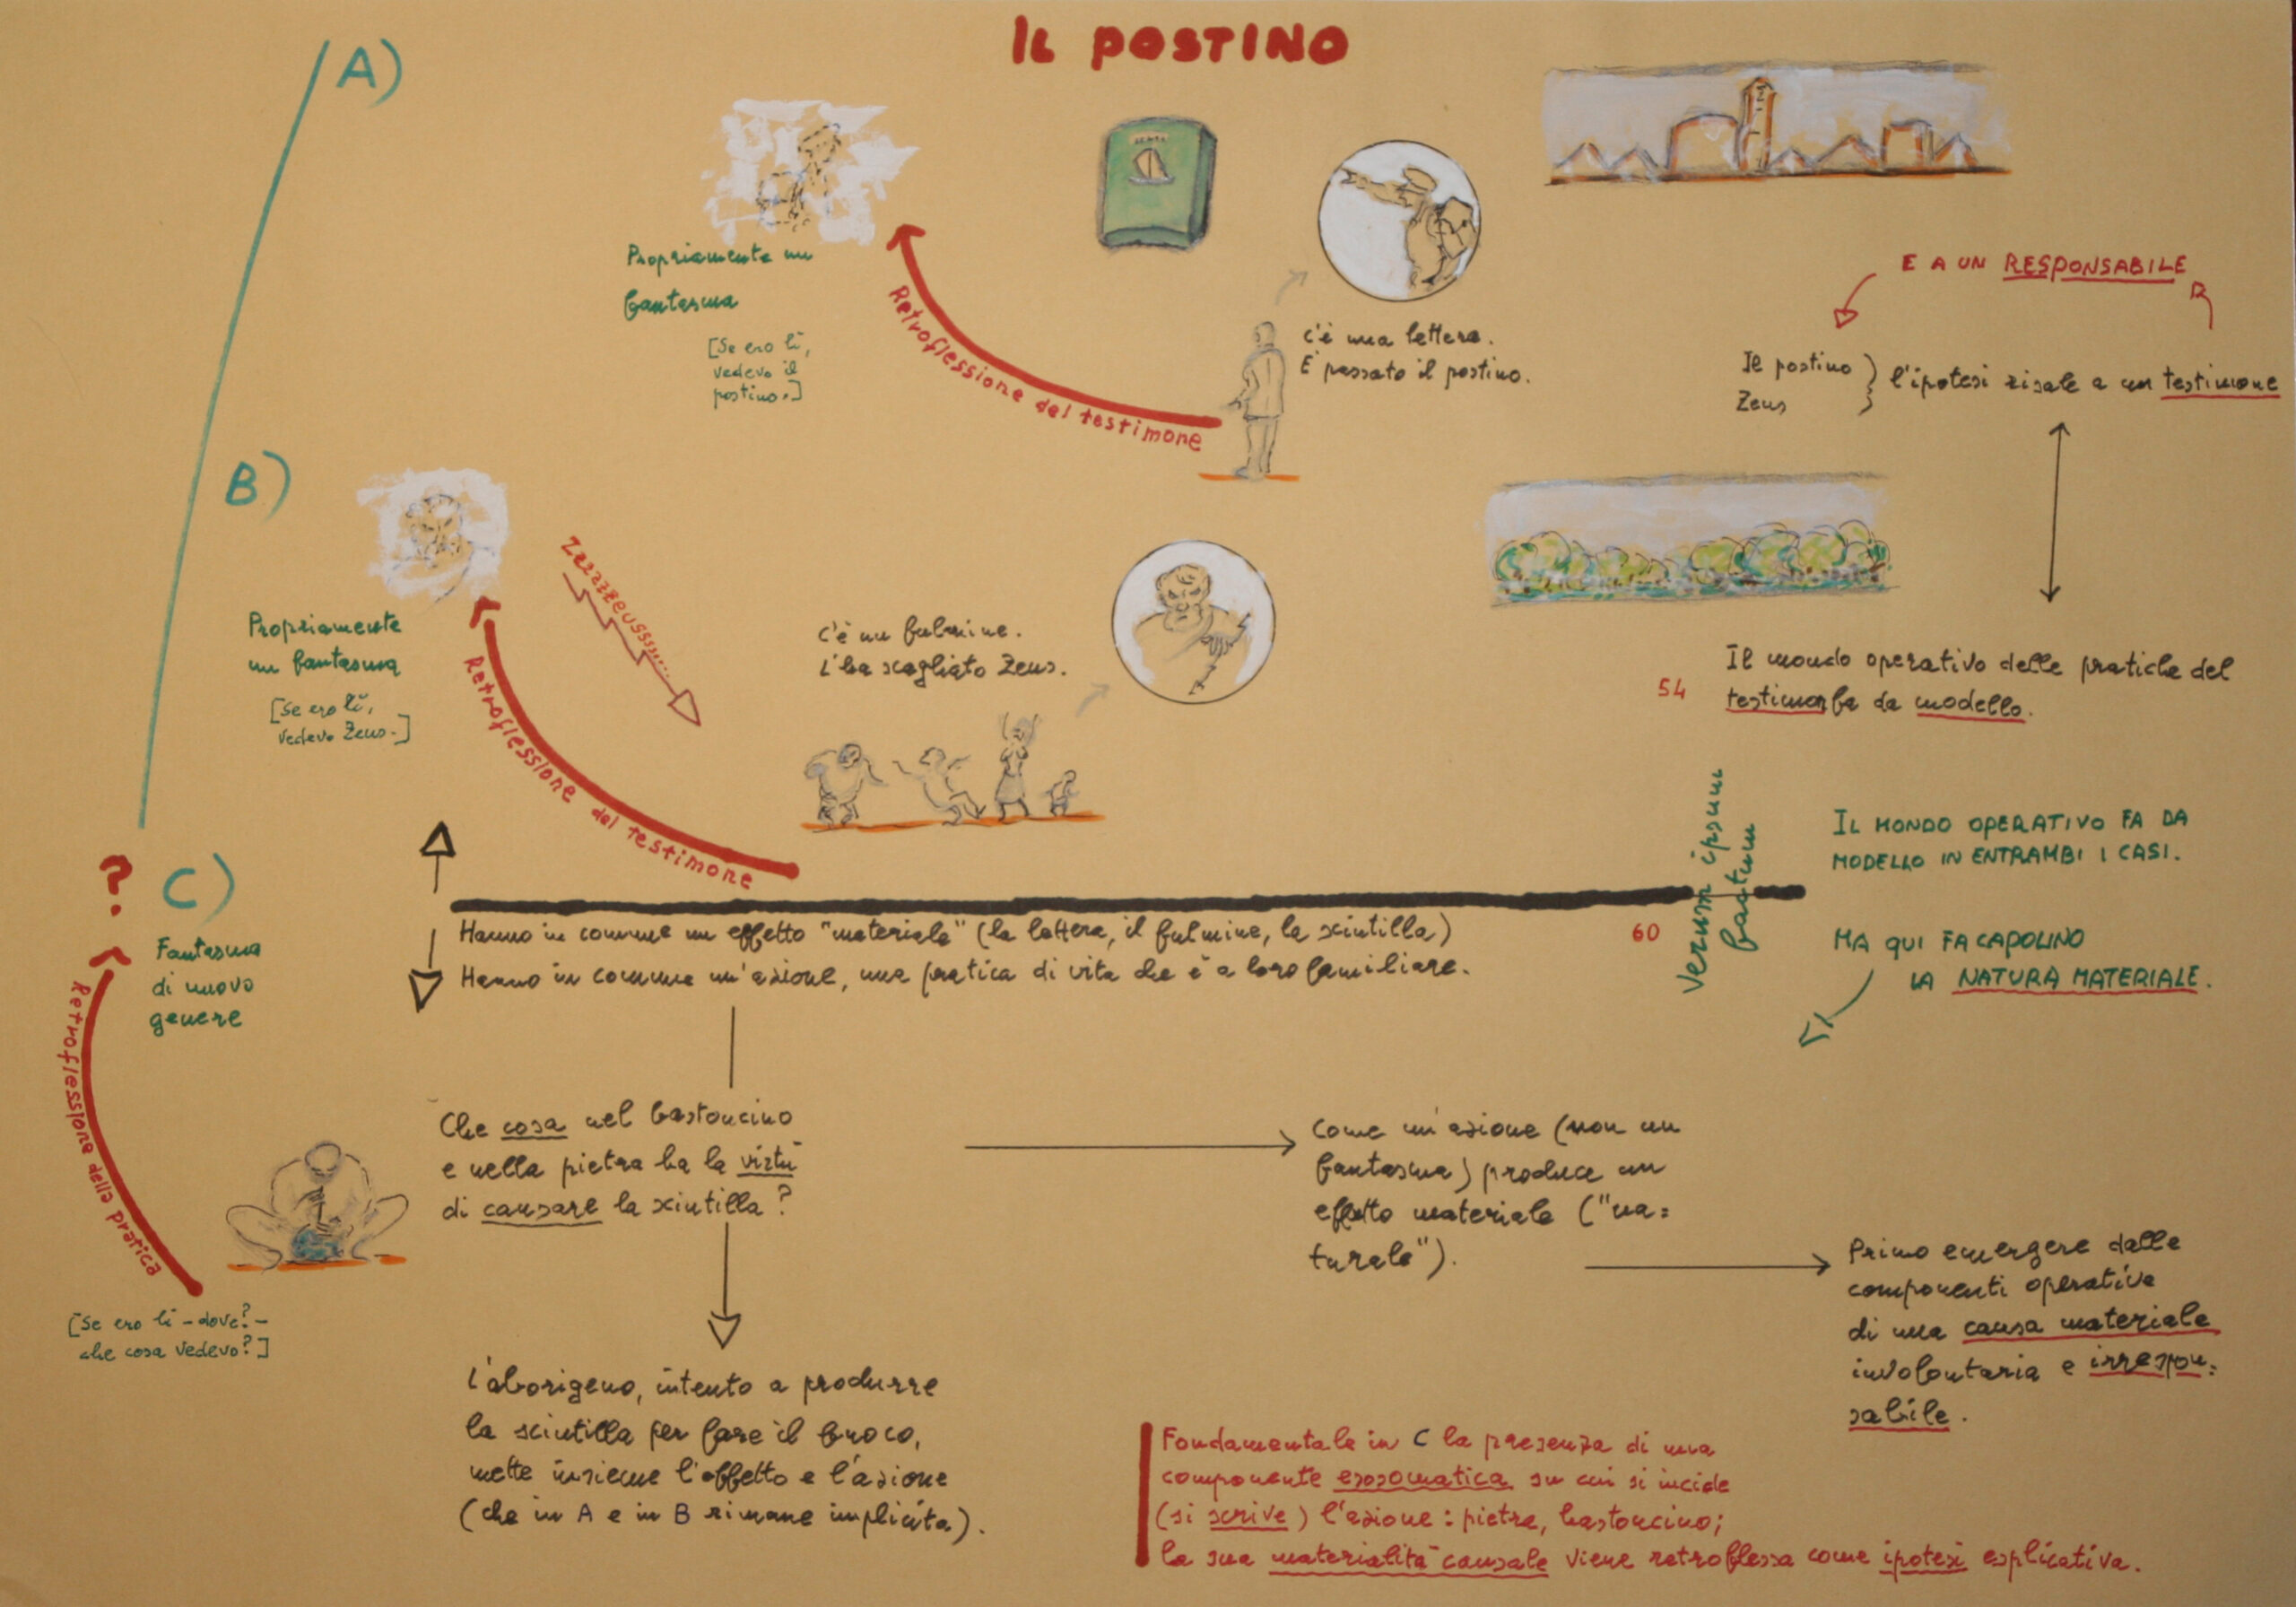 IL POSTINO
A)
Propriamente un
fantasma
[Se ero lì,
vedevo il
postino.]
Retroflessione del testimone
C'è una lettera.
È passato il postino.
E A UN RESPONSABILE
Il postino
Zeus
l'ipotesi risale a un testimone
B)
Propriamente
un fantasma
[Se ero lì,
vedevo Zeus.]
Retroflessione del testimone
C'è un fulmine.
L'ha scagliato Zeus.
54
Il mondo operativo delle pratiche del
fa da modello.
Verum ipsum
factum
IL MONDO OPERATIVO FA DA
MODELLO IN ENTRAMBI I CASI.
MA QUI FA CAPOLINO
LA NATURA MATERIALE.
60
Hanno in comune un effetto "materiale" (la lettera, il fulmine, la scintilla)
Hanno in comune un'azione, una pratica di vita che è a loro familiare.
?
C)
Fantasma
di nuovo
genere
Retroflessione della pratica
[Se ero lì - dove? -
che cosa vedevo?]
Che cosa nel bastoncino
e nella pietra ha la virtù
di causare la scintilla?
Come un'azione (non un
fantasma) produce un
effetto materiale ("na=
turale").
Primo emergere dalle
componenti operative
di una causa materiale
involontaria e irrespon=
sabile.
L'aborigeno, intento a produrre
la scintilla per fare il fuoco,
mette insieme l'effetto e l'azione
(che in A e in B rimane implicita).
Fondamentale in C la presenza di una
componente esosomatica su cui si incide
(si scrive) l'azione: pietra, bastoncino;
la sua materialità causale viene retroflessa come ipotesi esplicativa.